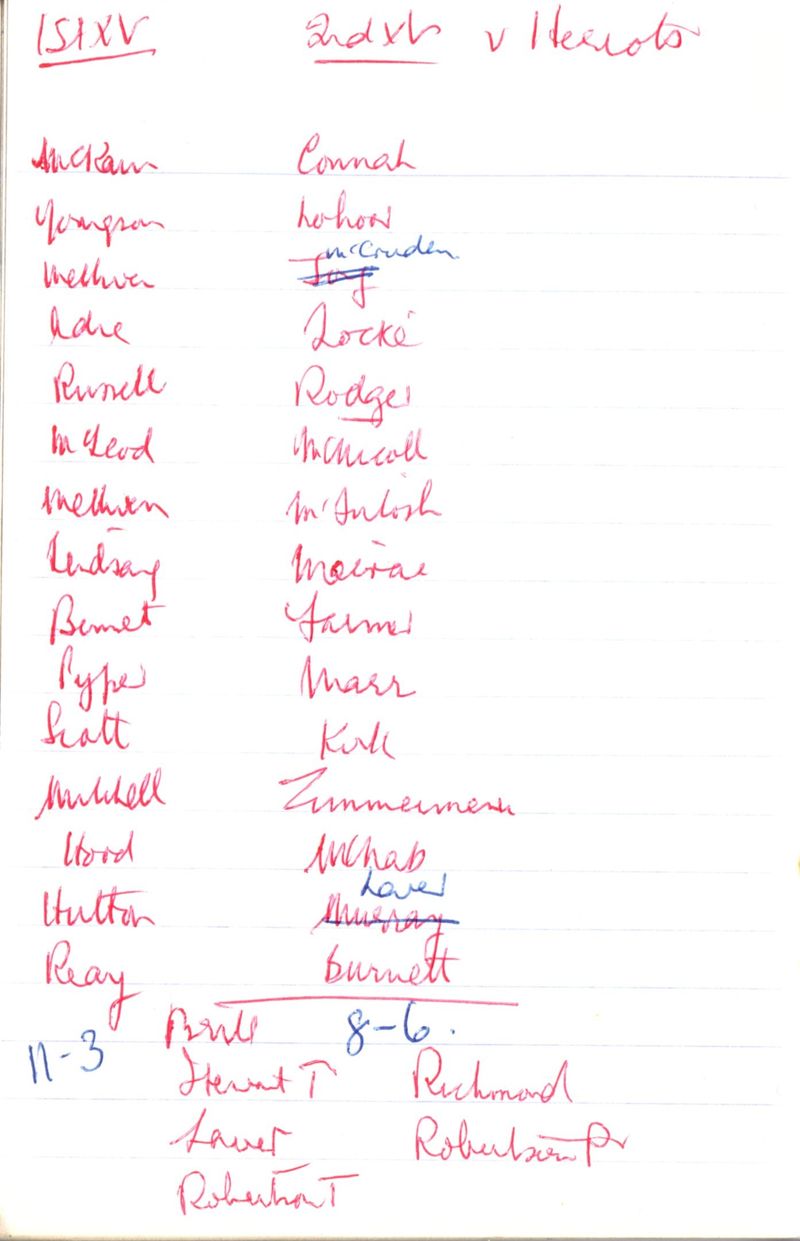 1st XV 2nd XV v Heriots
McKain Connah
Youngson Lohoar
Methven McCruden
Adie Locke
Russell Rodger
McLeod McNicoll
Methven McIntosh
Lindsay Macrae
Bennet Farmer
Pyper Marr
Scott Kirk
Mitchell Zimmerman
Hood McNab
Laver
Hutton Murray
Reay Burnett
8-6.
11-3
Stewart T Richmond
Laver Robertson Pr
Robertson T